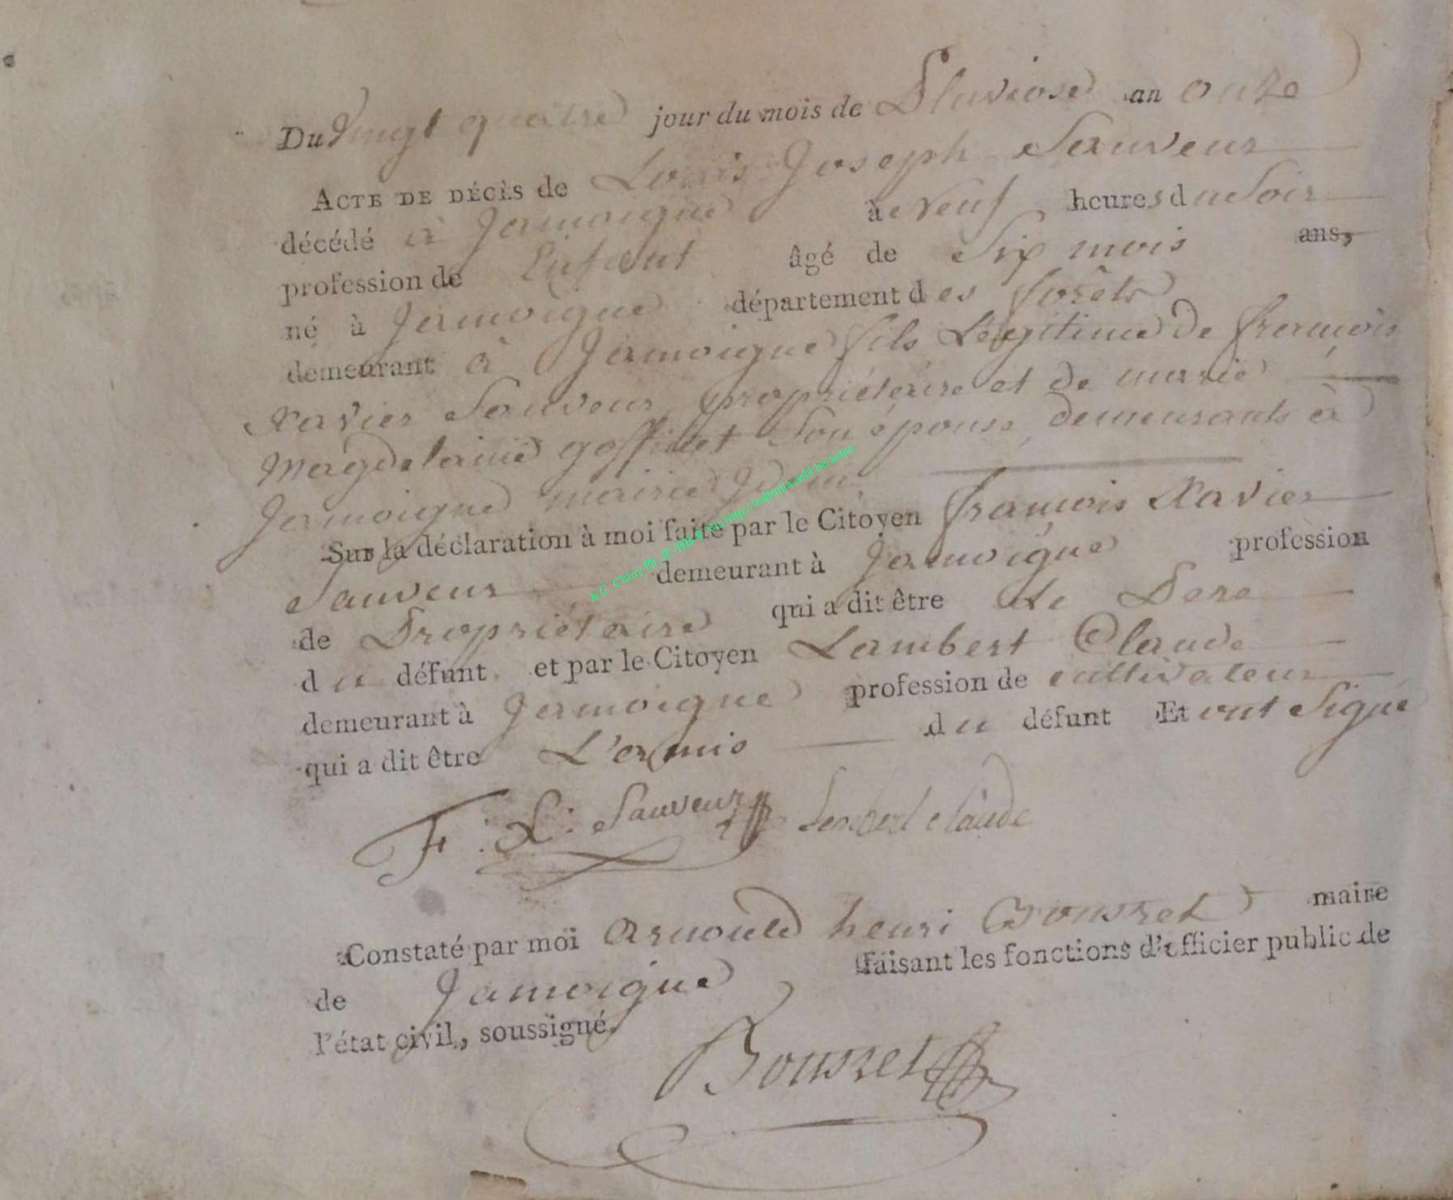 Du vingt quatre jour du mois de Pluviose an onze
ACTE DE DÉCÈS de Louis Joseph Sauveur
décédé à Jamoigne à neuf heures du Soir
profession de Enfant âgé de Six mois ans,
né à Jamoigne département des forêts
demeurant à Jamoigne fils Légitime de francois
Xavier Sauveur, propriétaire et de marie
Magdelaine goffinet Son épouse, demeurants à
Jamoigne mairie
Sur la déclaration à moi faite par le Citoyen francois Xavier
Sauveur demeurant à Jamoigne profession
de Propriétaire qui a dit être Le Pere
du défunt, et par le Citoyen Lambert Claude
demeurant à Jamoigne profession de cultivateur
qui a dit être L'ami du défunt Et ont Signé
F. X. Sauveur Lambert Claude
Constaté par moi Arnould henri maire
de Jamoigne faisant les fonctions d'officier public de
l'état civil, soussigné.